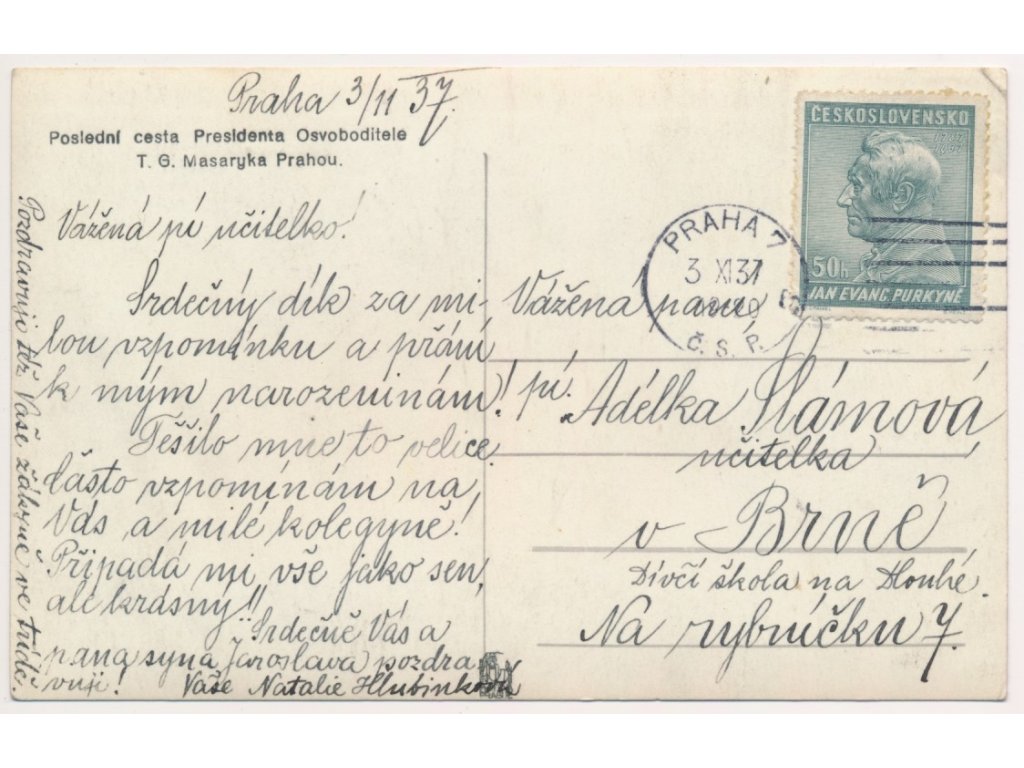 Praha 3/11 37.
Poslední cesta Presidenta Osvoboditele
T. G. Masaryka Prahou.
Vážená pí učitelko!
Srdečný dík za mi-
lou vzpomínku a přání
k mým narozeninám!
Těšilo mne to velice
často vzpomínám na
Vás a milé kolegyně!
Připadá mi vše jako sen,
ale krásný!!
Srdečně Vás a
pana syna Jaroslava pozdra
vuji! Vaše Natalie Hlubinková
Pozdravuji též Vaše žákyně ve třídě.
ČESKOSLOVENSKO
50h
JAN EVANG. PURKYNĚ
PRAHA 7
3 XI 37
Č. S. P.
Vážená paní
pí. Adélka Slámová
učitelka
v Brně
Dívčí škola na Dlouhé.
Na rybníčku 7.